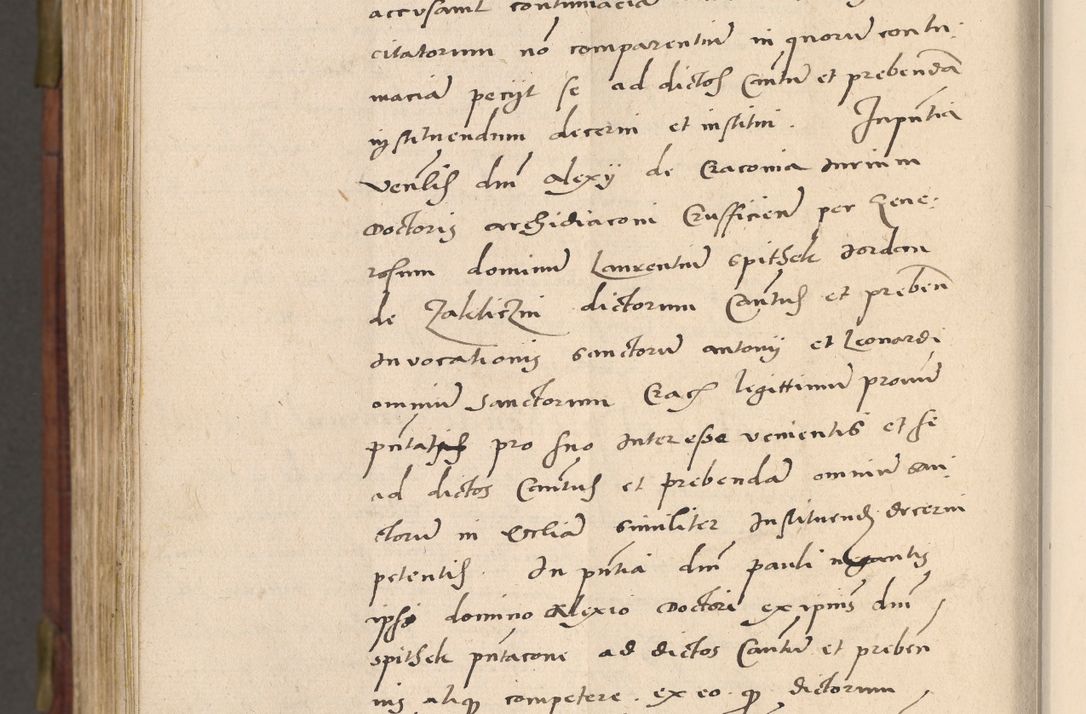 accusavit contumacia
citatorum no comparentiu in quoru contu:
macia petijt se ad dictos Cantu et prebenda
instituendum decerni et institui. In pntia
venlis dni Alexy de Cracovia Iurium
Doctoris archidiaconi Crusficien per Gene:
rosum dominu Laurentiu Spithek Iordan
de Zakliczin dictorum Cantus et preben
Invocationis Sanctoru Antonij et Leonardi
omniu Sanctorum Crac legittimu pronu
pntatis pro suo Interesse venientis et se
ad dictos Cantus et prebenda omniu san:
ctoru in Ecclia similiter Instituend decerni
petentis. In pntia dni pauli negantis
ipso domino Alexio Doctori ex ipius dni
Spithek pntacone ad dictos Cantu et preben
ius aliq competere. ex eo q dictorum